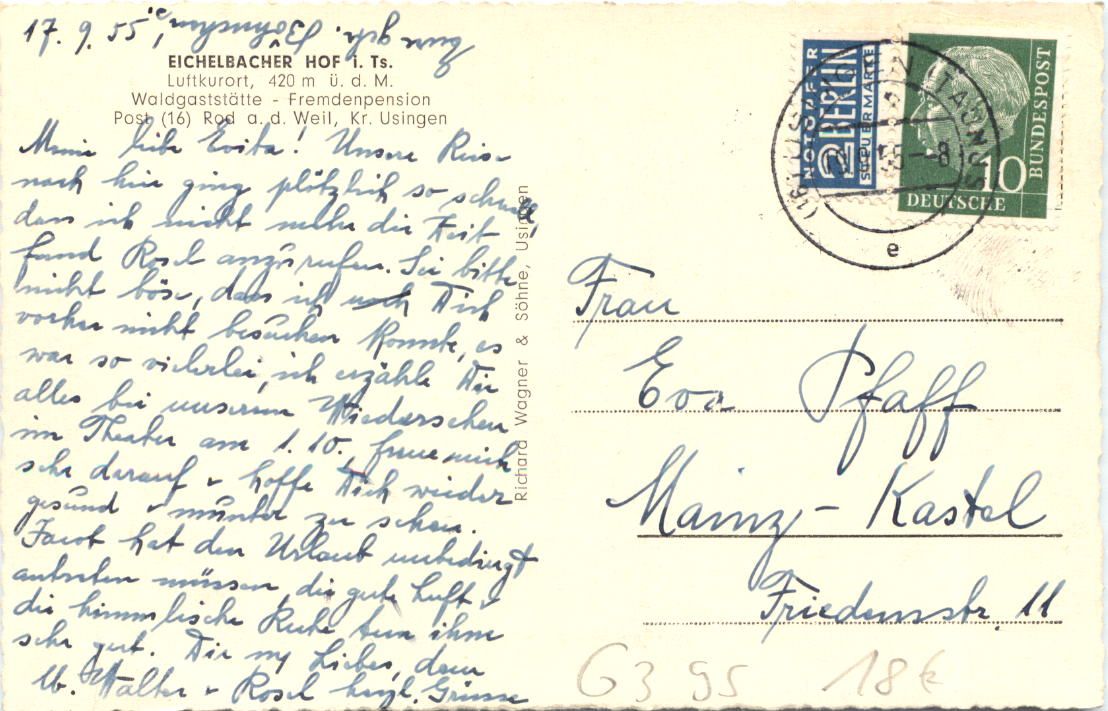 17. 9. 55
EICHELBACHER HOF i. Ts.
Luftkurort, 420 m ü. d. M.
Waldgaststätte - Fremdenpension
Post (16) Rod a. d. Weil, Kr. Usingen
Meine liebe Evita! Unsere Reise
nach hier ging plötzlich so schnell,
dass ich nicht mehr die Zeit
fand Rosel anzurufen. Sei bitte
nicht böse, dass ich Dich
vorher nicht besuchen konnte, es
war so vielerlei, ich erzähle Dir
alles bei unserem Wiedersehen
im Theater am 1.10., freue mich
sehr darauf u hoffe Dich wieder
gesund u munter zu sehen.
Jacob hat den Urlaub unbedingt
antreten müssen, die gute Luft u
die himmlische Ruhe tun ihm
sehr gut. Dir my Liebes, dem
lb. Walter u Rosel herzl. Grüsse
Richard Wagner & Söhne, Usingen
NOTOPFER
2 BERLIN
STEUERMARKE
DEUTSCHE
BUNDESPOST
10
(TAUNUS)
-8
e
Frau
Eva Pfaff
Mainz-Kastel
Friedenstr. 11
G395 18€